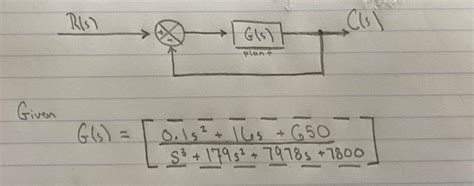 R(s) + - G(s) C(s)
plant
Given
G(s) = [ 0.1s² + 16s + 650
s³ + 179s² + 7978s + 7800 ]